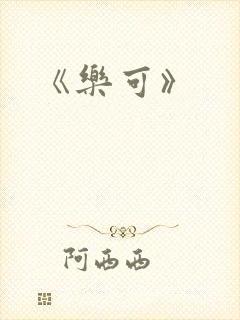 《樂可》
阿西西